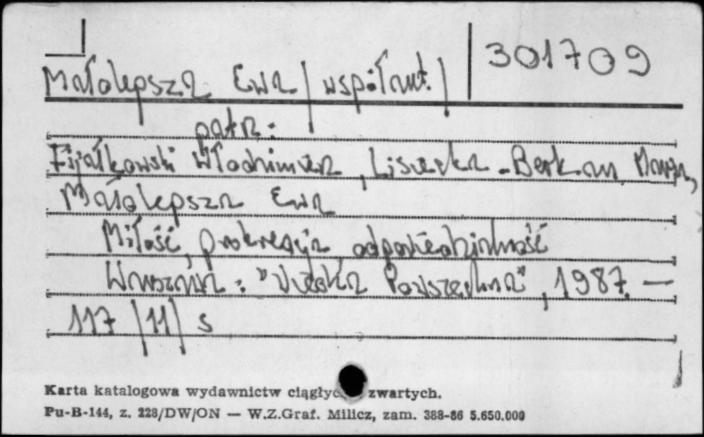 301709
Małolepsza Ewa /współaut./
patrz:
Fijałkowski Włodzimierz, Lisiecka-Berk-an Maria,
Małolepsza Ewa
Miłość, prokreacja odpowiedzialność
Warszawa: "Wiedza Powszechna", 1987. —
117 /11/ s
Karta katalogowa wydawnictw ciągłyc zwartych.
Pu-B-144, z. 228/DW/ON — W.Z.Graf. Milicz, zam. 388-86 5.650.000